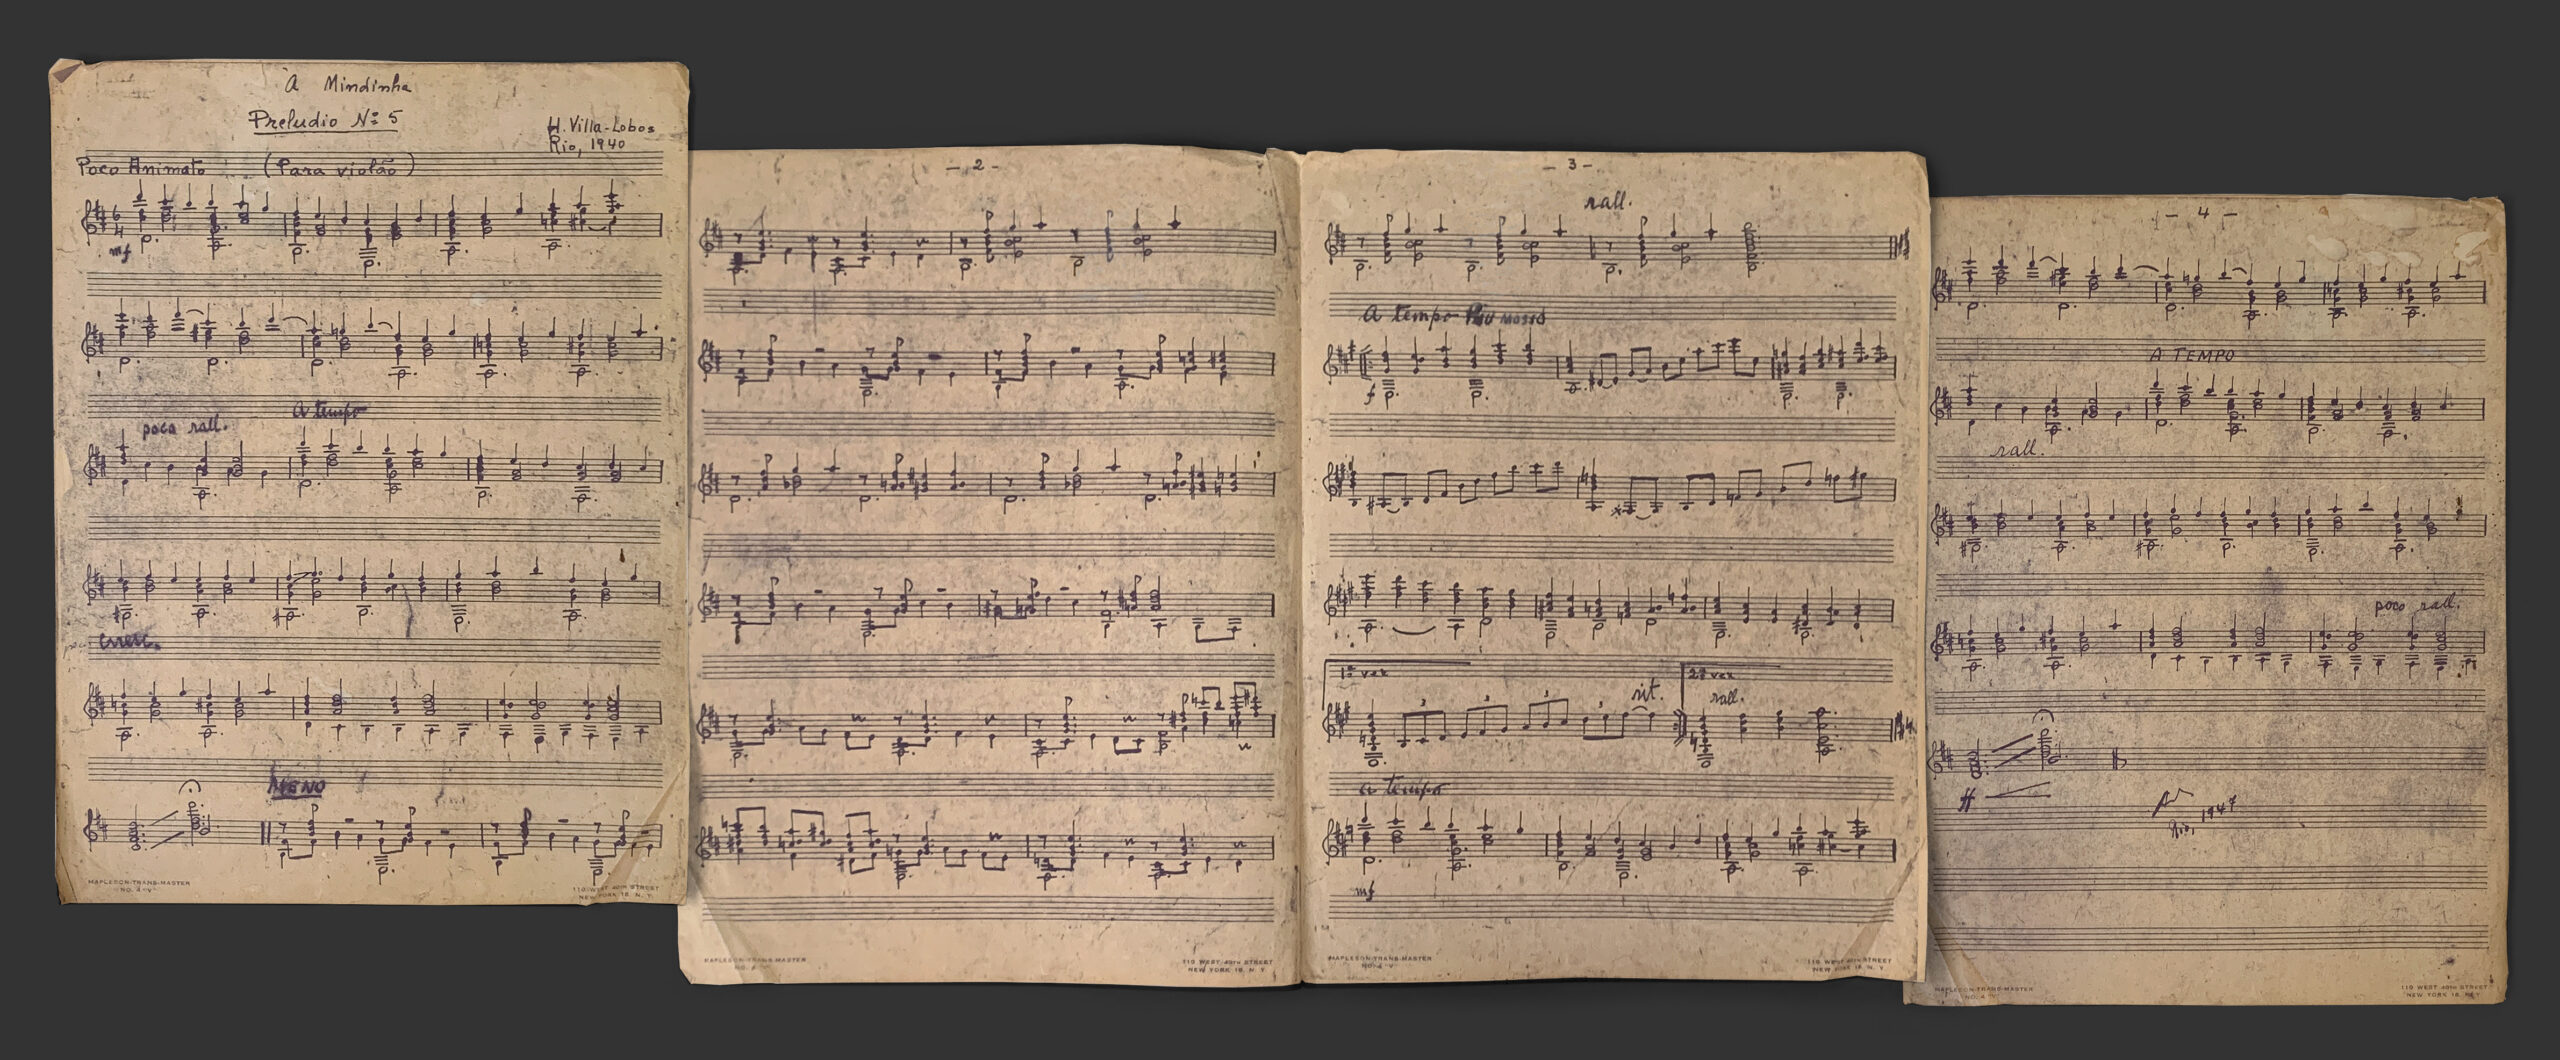 À Mindinha
Preludio Nº 5
H. Villa-Lobos
Rio, 1940
Poco Animato (Para violão)
mf
poco rall. a tempo
cresc.
MENO
MAPLESON-TRANS-MASTER
NO. 4 "V"
110 WEST 40TH STREET
NEW YORK 18, N. Y.
- 2 -
MAPLESON-TRANS-MASTER
NO. 4 "V"
110 WEST 40TH STREET
NEW YORK 18, N. Y.
- 3 -
rall.
A tempo Piu mosso
f
1ª vez rit. 2ª vez
rall.
a tempo
mf
MAPLESON-TRANS-MASTER
NO. 4 "V"
110 WEST 40TH STREET
NEW YORK 18, N. Y.
- 4 -
A TEMPO
rall.
poco rall.
ff
Rio, 1947
MAPLESON-TRANS-MASTER
NO. 4 "V"
110 WEST 40TH STREET
NEW YORK 18, N. Y.